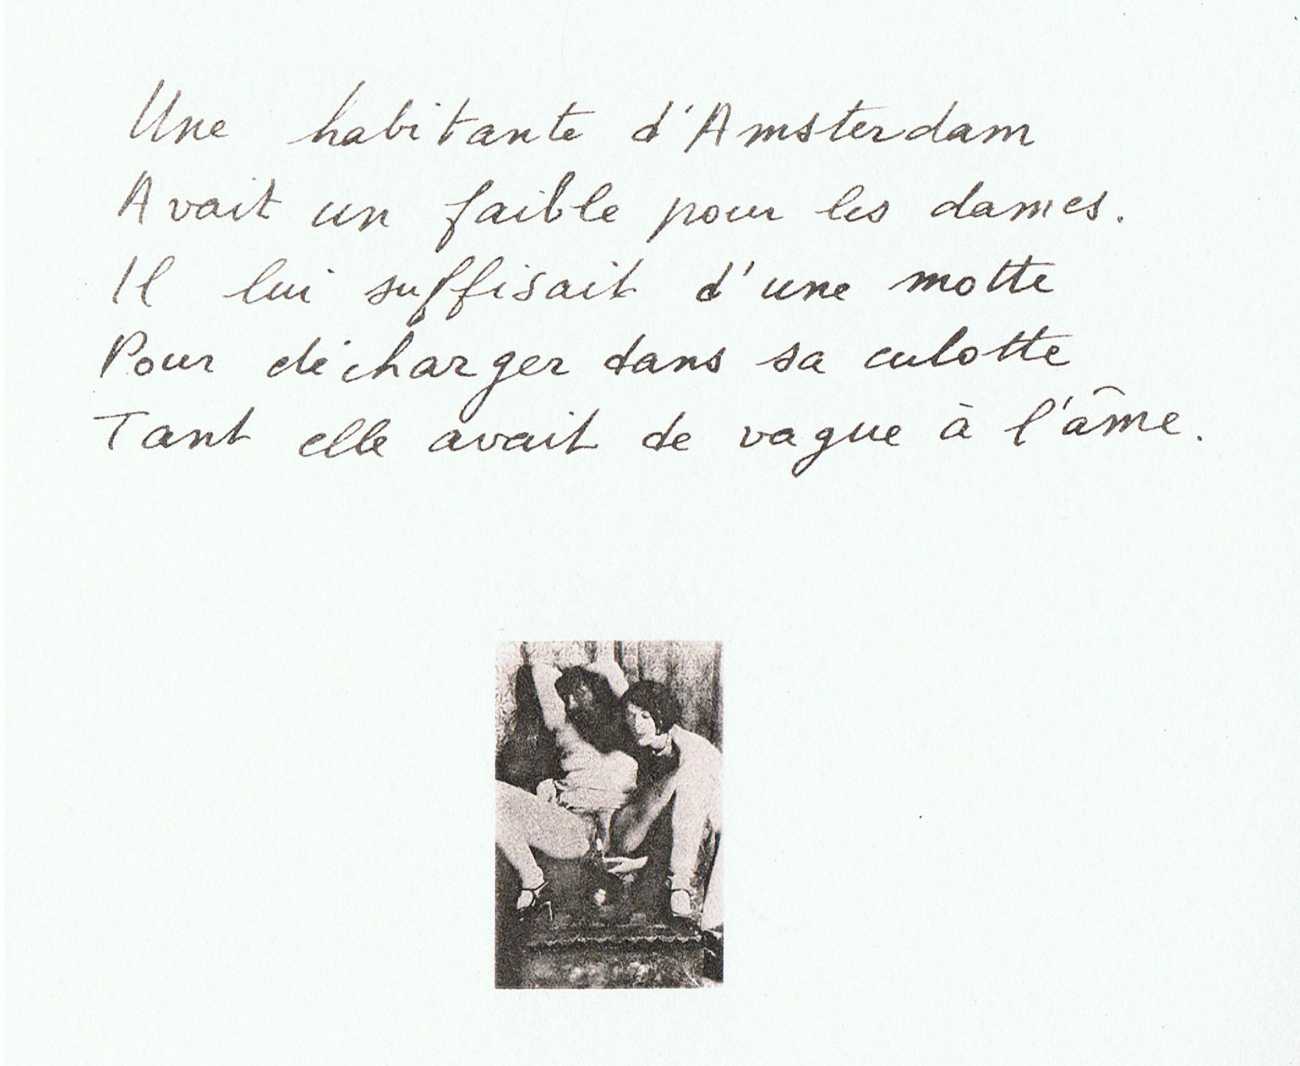 Une habitante d'Amsterdam
Avait un faible pour les dames.
Il lui suffisait d'une motte
Pour décharger dans sa culotte
Tant elle avait de vague à l'âme.